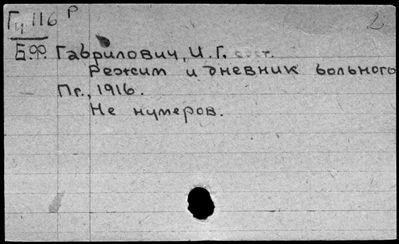 Гч 116 Р 2
Б.Ф. Гаврилович, И.Г. сост.
Режим и дневник больного
Пг., 1916.
Не нумеров.